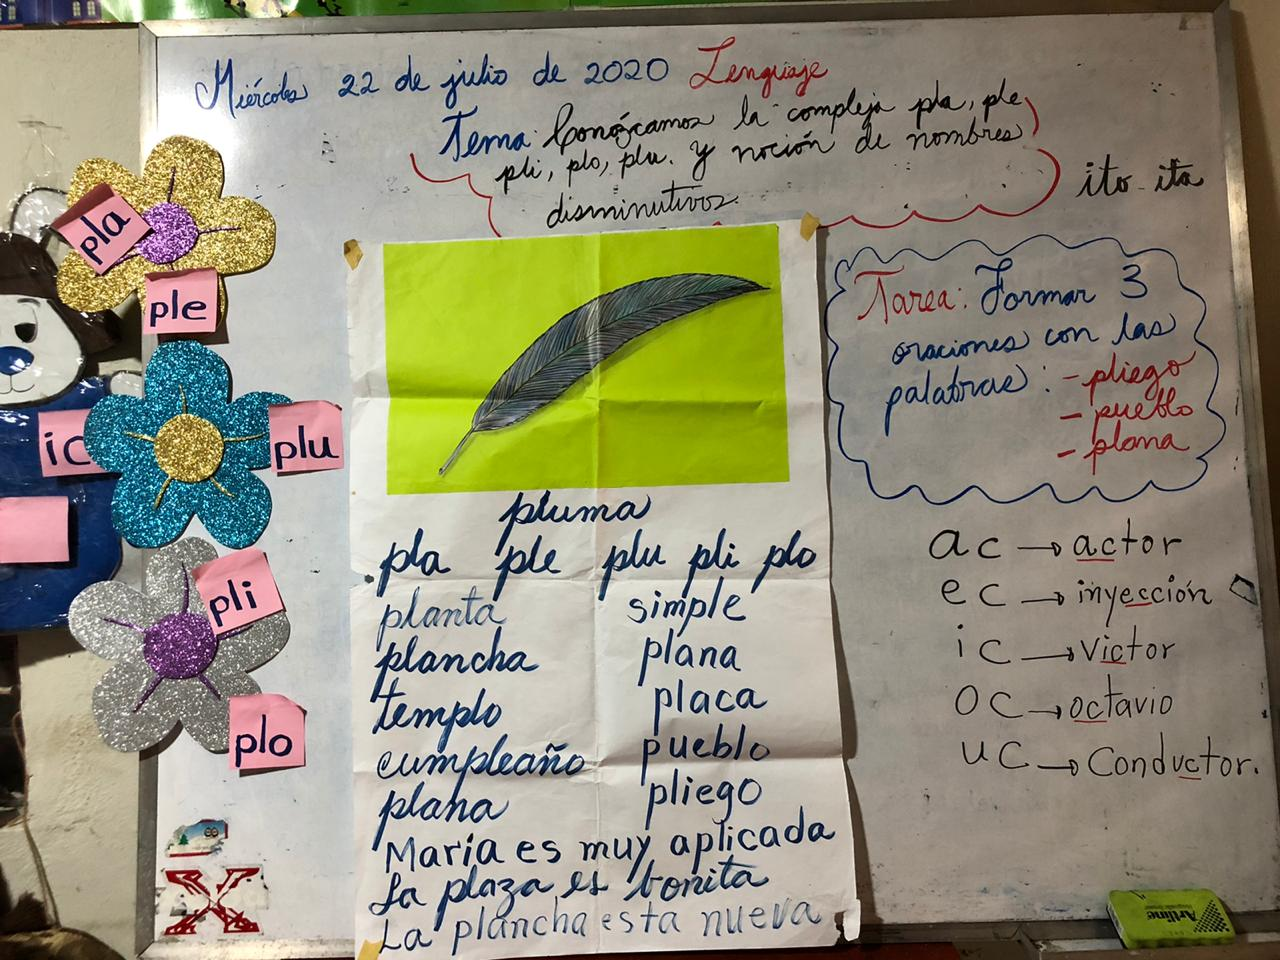 Miércoles 22 de julio de 2020 Lenguaje
Tema: Conózcamos la compleja pla, ple
pli, plo, plu. y noción de nombres
disminutivos.
ito ita
pla
ple
ic
plu
pli
plo
pluma
pla ple plu pli plo
planta simple
plancha plana
templo placa
cumpleaño pueblo
plana pliego
Maria es muy aplicada
La plaza es bonita
La plancha esta nueva
Tarea: Formar 3
oraciones con las
palabras: - pliego
- pueblo
- plana
ac → actor
ec → inyección
ic → victor
oc → octavio
uc → Conductor.
Artline